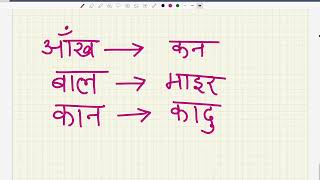 आँख → कन
बाल → माइर
कान → कादु